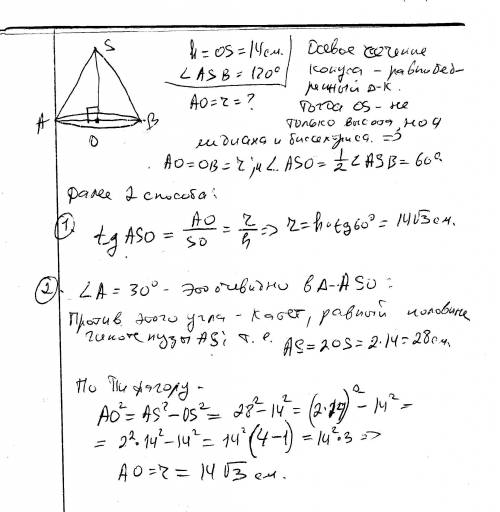 S
A
B
O
h = OS = 14 см.
∠ASB = 120°
AO = r = ?
Осевое сечение
конуса – равнобед-
ренный Δ-к.
Тогда OS – не
только высота, но и
медиана и биссектриса. ⇒
AO = OB = r; и ∠ASO = 1/2 ∠ASB = 60°
Далее 2 способа:
1. tg ASO = AO/SO = r/h ⇒ r = h·tg60° = 14√3 см.
2. ∠A = 30° – это очевидно в Δ-ASO:
Против этого угла – катет, равный половине
гипотенузы AS; т. е. AS = 2OS = 2·14 = 28 см.
По Пифагору –
AO² = AS² – OS² = 28² – 14² = (2·14)² – 14² =
= 2²·14² – 14² = 14²(4–1) = 14²·3 ⇒
AO = r = 14√3 см.